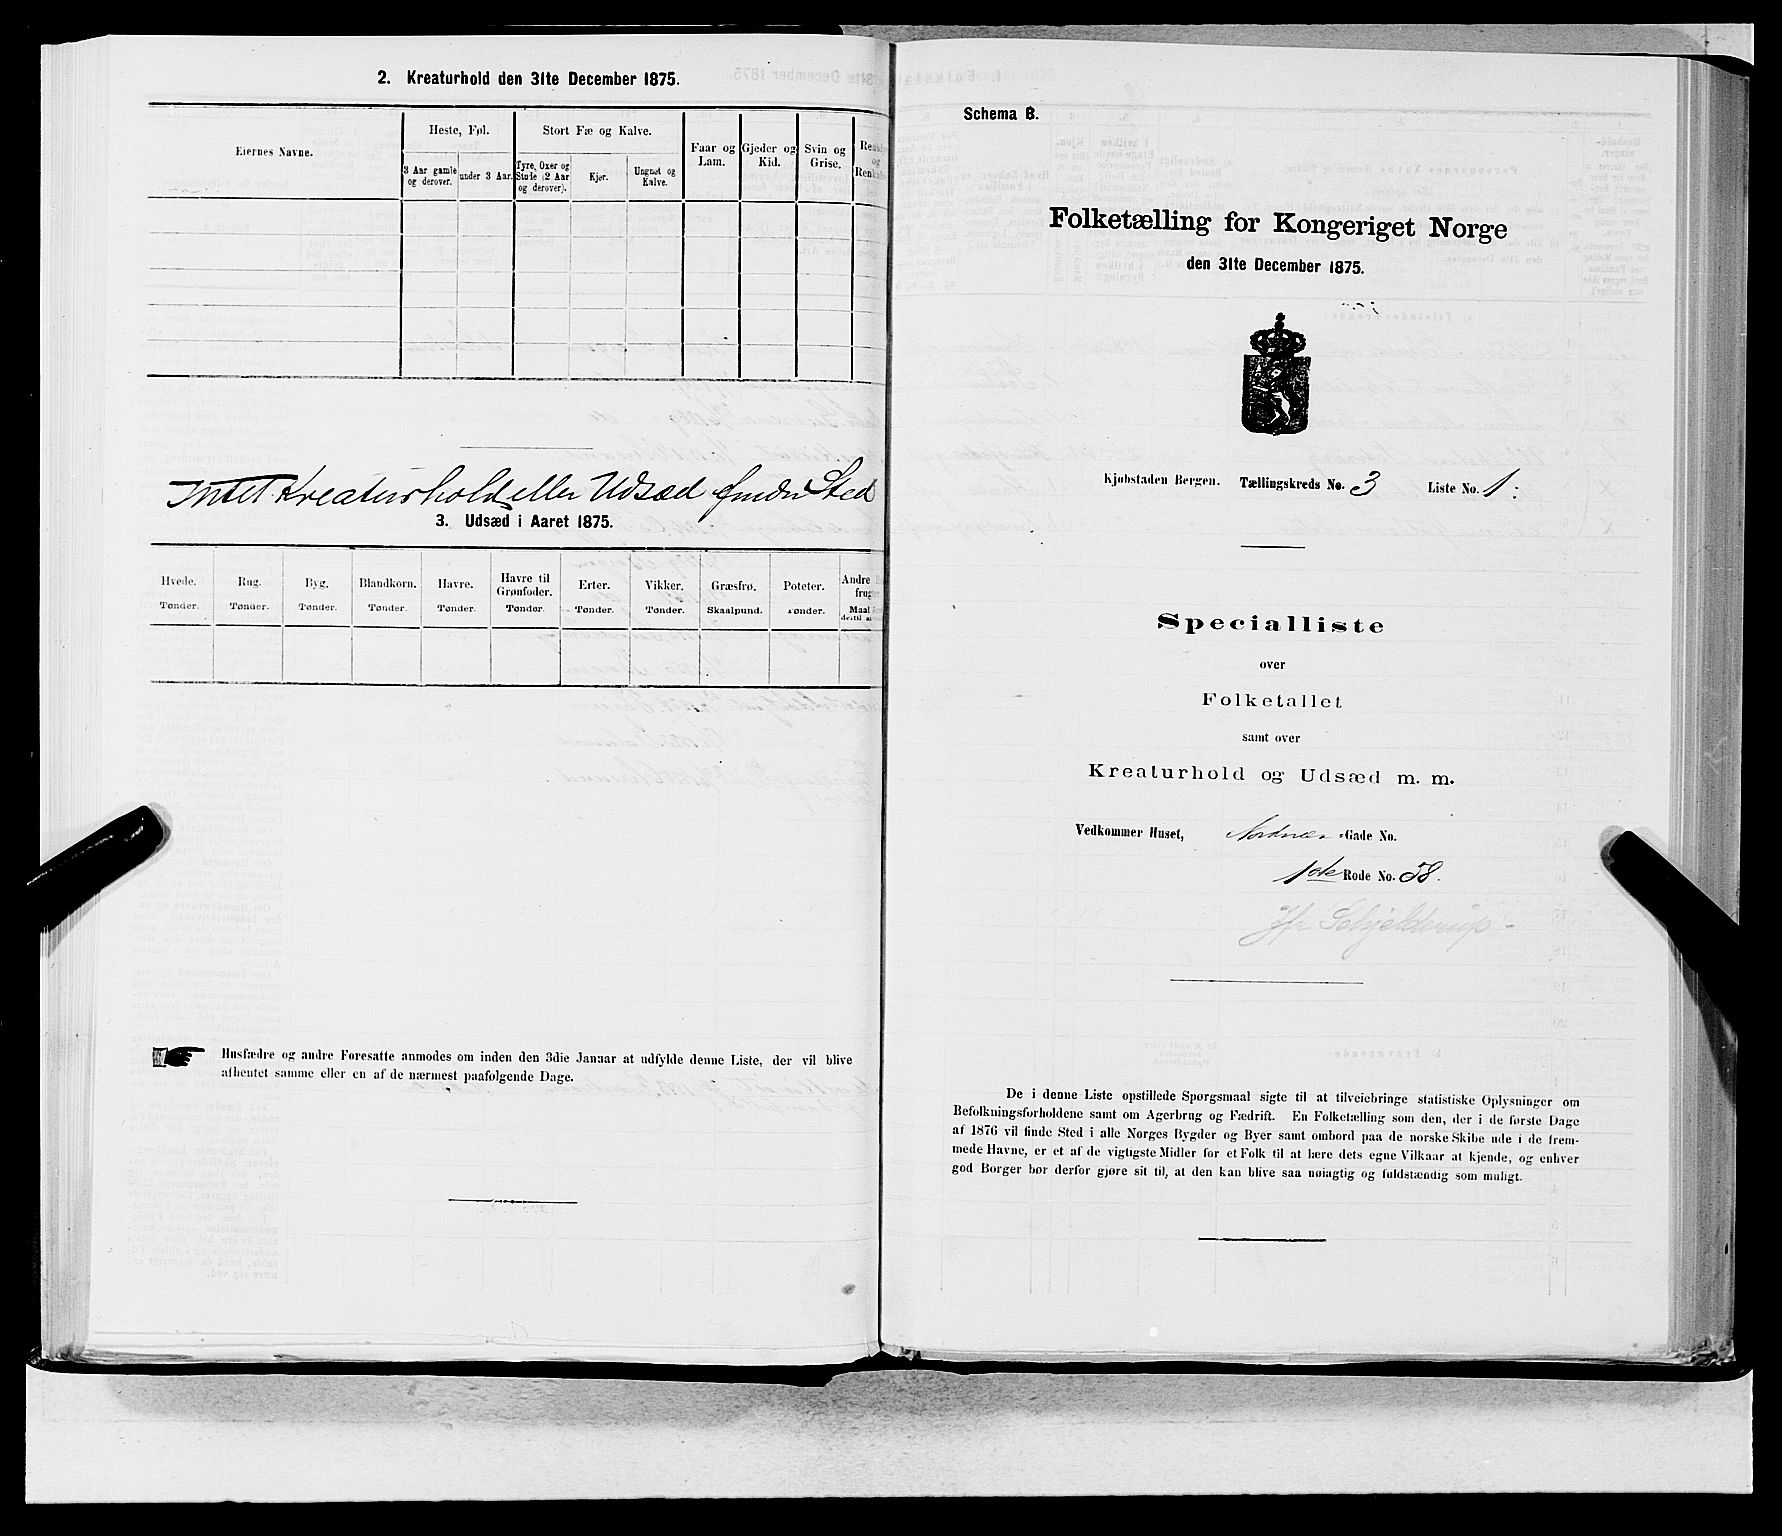 2. Kreaturhold den 31te December 1875.
Eiernes Navne.
Heste, Føl.
Stort Fæ og Kalve.
Faar og
Lam.
Gjeder og
Kid.
Svin og
Grise.
3 Aar gamle
og derover.
under 3 Aar.
Tyre, Oxer og
Stude (2 Aar
og derover).
Kjør.
Ungnøt og
Kalve.
Intet Kreaturhold eller Udsæd finder Sted
3. Udsæd i Aaret 1875.
Hvede.
Rug.
Byg.
Blandkorn.
Havre.
Havre til
Grønfoder.
Erter.
Vikker.
Græsfrø.
Poteter.
Andre
Tønder.
Tønder.
Tønder.
Tønder.
Tønder.
Tønder.
Tønder.
Tønder.
Skaalpund.
Tønder.
Maal
Husfædre og andre Foresatte anmodes om inden den 3die Januar at udfylde denne Liste, der vil blive
afhentet samme eller en af de nærmest paafølgende Dage.
Schema B.
Folketælling for Kongeriget Norge
den 31te December 1875.
Kjøbstaden Bergen. Tællingskreds No. 3 Liste No. 1.
Specialliste
over
Folketallet
samt over
Kreaturhold og Udsæd m. m.
Vedkommer Huset, Nordnæs Gade No.
1ste Rode No. 58.
Jfr Schjelderup
De i denne Liste opstillede Spørgsmaal sigte til at tilveiebringe statistiske Oplysninger om
Befolkningsforholdene samt om Agerbrug og Fædrift. En Folketælling som den, der i de første Dage
af 1876 vil finde Sted i alle Norges Bygder og Byer samt ombord paa de norske Skibe ude i de frem-
mede Havne, er et af de vigtigste Midler for et Folk til at lære dets egne Vilkaar at kjende, og enhver
god Borger bør derfor gjøre sit til, at den kan blive saa nøiagtig og fuldstændig som muligt.